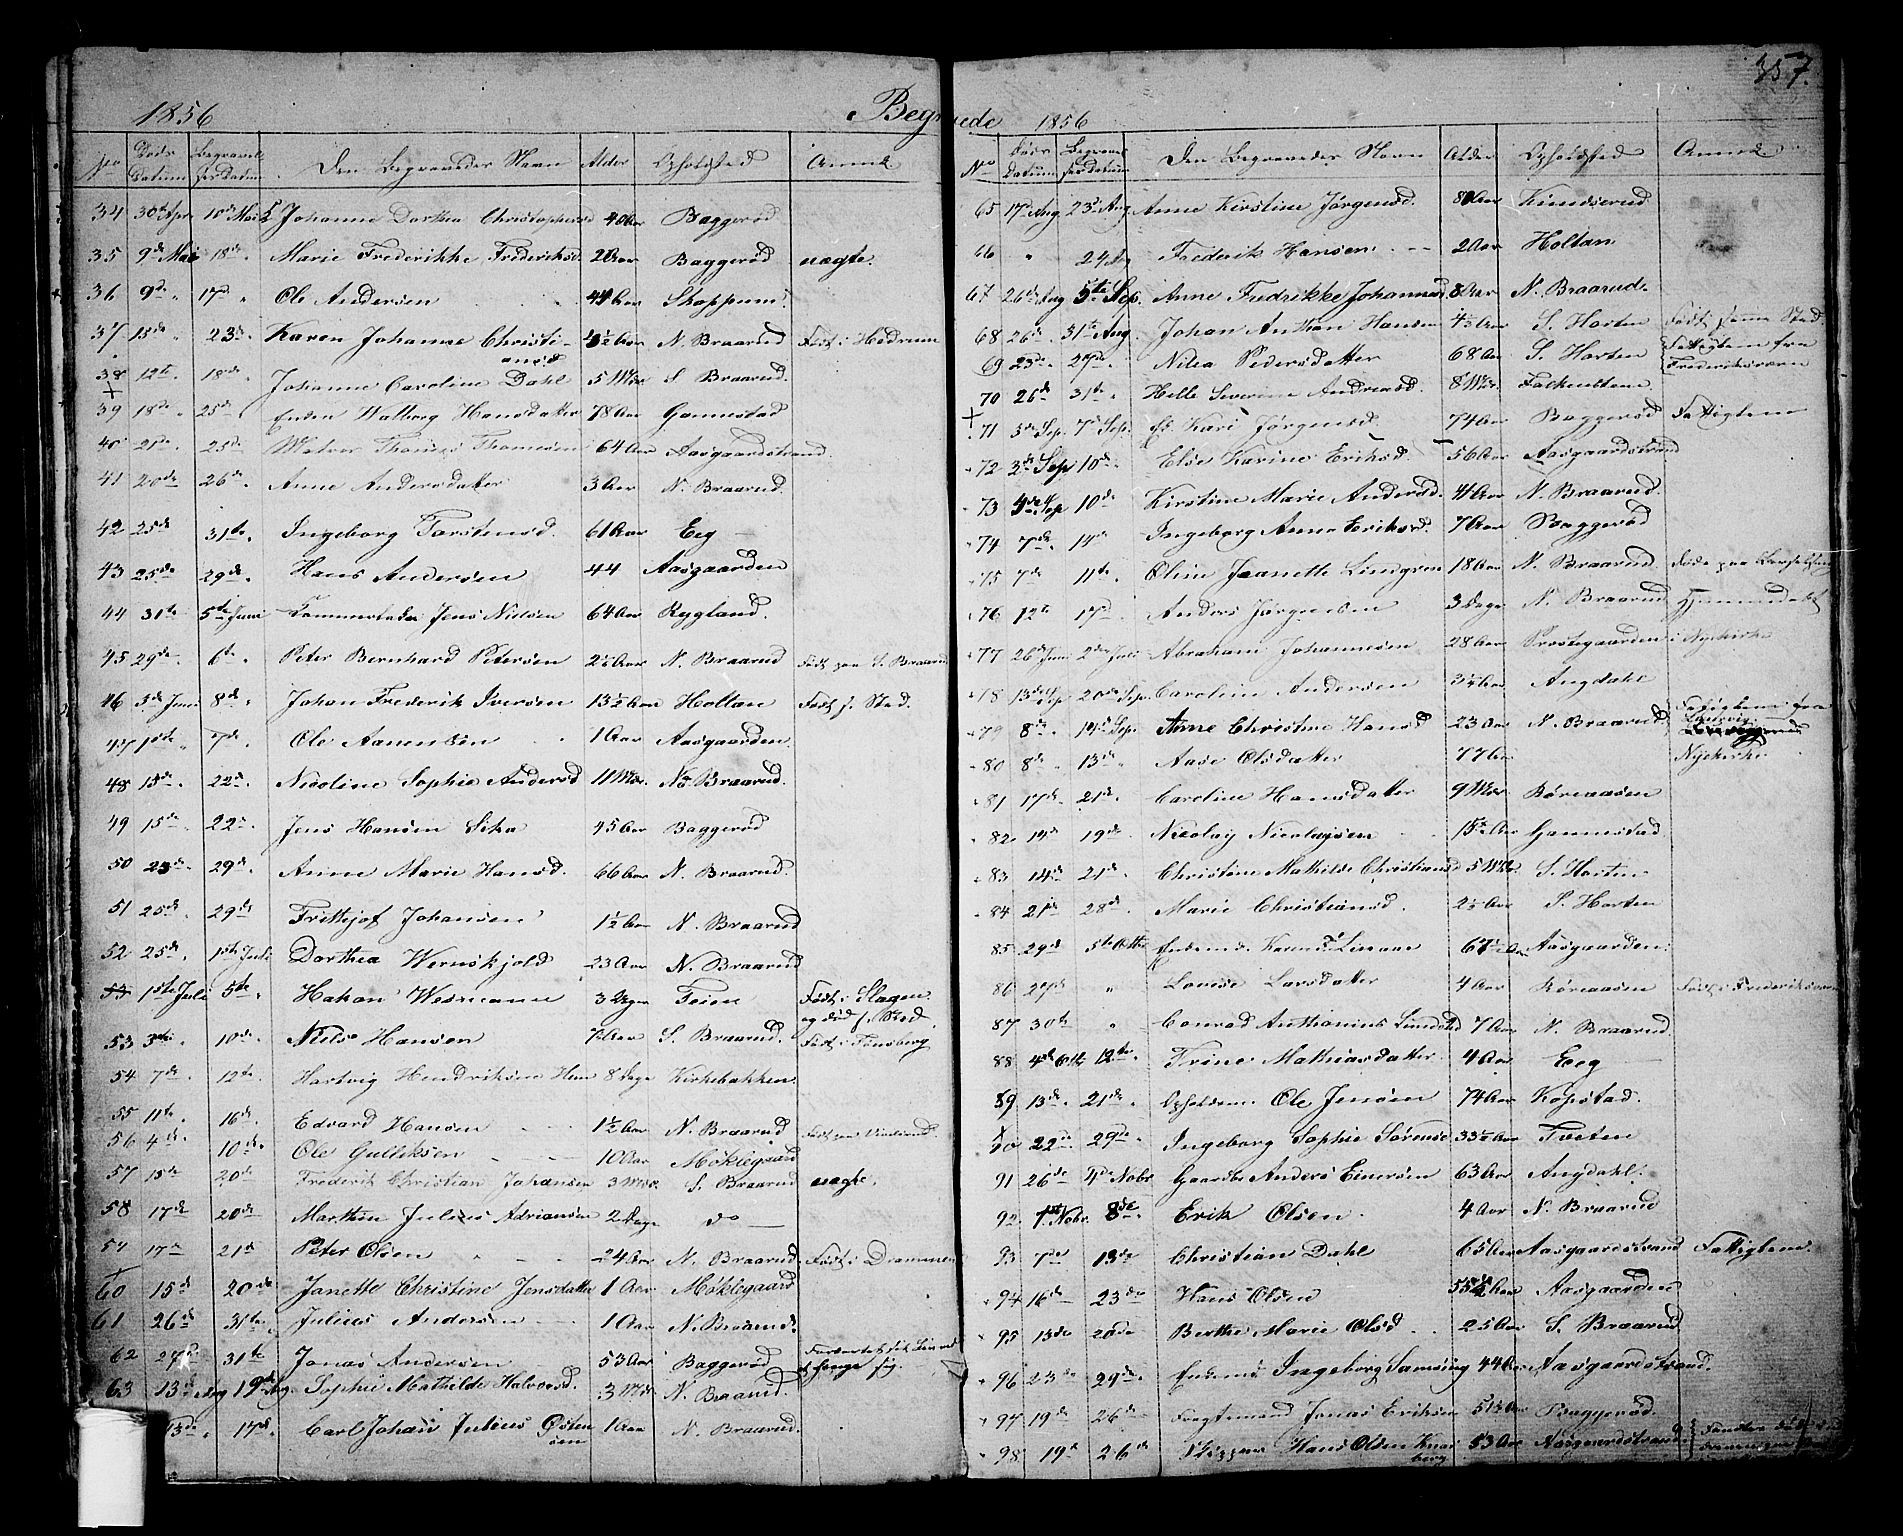 357.
1856
Begravede
No Døds Datum Begravel ses Datum Den Begravedes Navn Alder Opholdsted Anm:
34 30te Apr 10de Mai Johanne Dorthea Christophersd 40 Aar Baggerød
35 9de Mai 18de " Marie Frederikke Frederiksd. 2 Aar Baggerød uægte.
36 9de " 17de " Ole Andersen 44 Aar Skoppum
37 18de " 23de Karen Johanne Christi- 4½ Aar N. Braarud Født i Hedrum
ansd
38 12te " 18de " Johanne Caroline Dahl 5 Mdr S. Braarud.
39 18de " 25de " Enken Walborg Hansdatter 78 Aar Gannestad
40 21de " 25de Thomesen 64 Aar Aasgaardstrand.
41 20de 26de " Anne Andersdatter 3 Aar N. Braarud.
42 25de 31te " Ingeborg Torstensd. 61 Aar Eeg
43 25de 29de " Hans Andersen 44 Aasgaarden
44 31te 5te Juni Jens Nielsen 64 Aar Rygland.
45 29de 6te " Peter Bernhard Petersen 2½ Aar N. Braarud Født paa S. Braarud
46 3de Juni 8de " Johan Frederik Iversen 13½ Aar Holtan Født s. Sted.
47 1ste " 7de " Ole Aanensen 1 Aar Aasgaarden.
48 15de " 22de " Nicoline Sophie Andersd 11 Mdr. No Braarud.
49 15de " 22de " Jens Hansen 45 Aar Baggerød
50 23de " 29de " Anne Marie Hansd. 66 Aar N. Braarud.
51 25de " 29de Frithjof Johansen 1½ Aar N. Braarud
52 25de " 1ste Juli Dorthea Wernskjold 23 Aar N. Braarud
53 1ste Juli 5te " Hakon Wesmann 3 Dage Feien Født i Slagen
og død s. Sted.
53 3die 10de " Niels Hansen 7 Aar S. Braarud. Født i Tønsberg
54 7de 12te " Hartvig Hendriksen Hem 8 Dage Kirkebakken
55 11te 16de " Edvard Hansen 1½ Aar N. Braarud
56 4de " 10de " Ole Gulliksen 10 Aar Møklegaard
57 15de 20de Frederik Christian Johansen 3 Mdr S. Braarud uægte.
58 17de 20de " Marthin Julius Adriansen 2 Dage do
59 17de 21de Peter Olsen 24 Aar N. Braarud. Født i Drammen
60 15de 20de Janette Christine Jensdatter 1 Aar Møklegaard
61 26de 31te " Julius Andersen 1 Aar N. Braarud.
62 27de 31te Jonas Andersen 53 Aar Baggerød
63 13de Aug 19de Aug. Sophie Mathilde Halvorsd. 3 Mdr N. Braarud.
13de " 17de " Carl Johan Julius Østen 1 Aar N. Braarud.
sen
1856
No Døds Datum Begravel ses Datum Den Begravedes Navn Alder Opholdsted Anm:
65 17de Aug 23de Aug Anne Kirstine Jørgensd. 8 Aar
66 " 24 Aug Frederik Hansen. 2 Aar Holtan
67 26de Aug 5te Sep. Anne Fredrikke Johannesd 8 Aar N. Braarud.
68 26de " 31te Aug. Johan Anthon Hansen 4½ Aar S. Horten Født samme Sted.
69 23de " 27de " Nilia Pedersdatter 68 Aar S. Horten Fattiglem fra
Frederiksværn
70 26de 31te " Helle Severine Andreasd. 8 Mdr. Falkensteen
71 3de Sep. 7de Sep. Kari Jørgensd. 74 Aar Baggerød Fattiglem
72 3de Sep 10de " Else Karine Eriksd. 56 Aar Aasgaardstrand
73 4de Sep 10de " Kirstine Marie Andersd. 4 Aar N. Braarud.
74 7de " 14de Ingeborg Anne Eriksd. 7 Aar Baggerød
75 7de 11te " Oline Jeanette Lindgren 18 Aar N. Braarud.
76 12te 17de Anders Jørgensen 3 Dage N. Braarud Hjemmedøbt
77 26de Juni 2den Juli Abraham Johannesen 28 Aar Prestegaarden i Nykirke
78 13de Sep 20de Sep. Caroline Andersen 3½ Aar Angdahl
79 8de " 14de Sep. Anne Christine Hansd 23 Aar N. Braarud. Fattiglem fra
80 8de " 13de " Aase Olsdatter 77 Aar Nykirke
81 17de " 21de " Caroline Hansdatter 9 Mdr
82 14de 19de " Nicolay Nicolaysen 15 Aar Gannestad.
83 14de " 21de " Christine Mathilde Christiansd 5 Mdr. S. Horten
84 21de 28de " Marie Christiansd. 2½ Aar S. Horten
85 29de 5te Octbr Enkemd. 67½ Aar Aasgaarden.
86 29de " Lovise Larsdatter 4 Aar Født i Frederiksværn
87 30te " Conrad Anthonius 7 Aar N. Braarud.
88 4de Oct 12te " Trine Mathiasdatter. 4 Aar Eeg
89 13de " 21de " Opholdsm. Ole Jensen 74 Aar Kopstad.
90 22de " 29de " Ingeborg Sophie Sørensd 33½ Aar Tveten
91 26de 4de Nobr Gaardbr Anders Einersen 63 Aar Angdahl.
92 1ste Nobr. 8de " Erik Olsen. 4 Aar N. Braarud
93 7de 13de Christian Dahl 65 Aar Aasgaardstrand Fattiglem.
94 16de 23de Hans Olsen Aar Aasgaarden
95 13de 20de Berthe Marie Olsd. 25 Aar S. Braarud
96 23de 29de " Enkemd Ingeborg Samsing 44 Aar Aasgaardstrand.
97 19de 26de " Jonas Eriksen 51½ Aar Baggerød.
98 19de 26de Skipper Hans Olsen Kongs 53 Aar Aasgaardstrand
berg